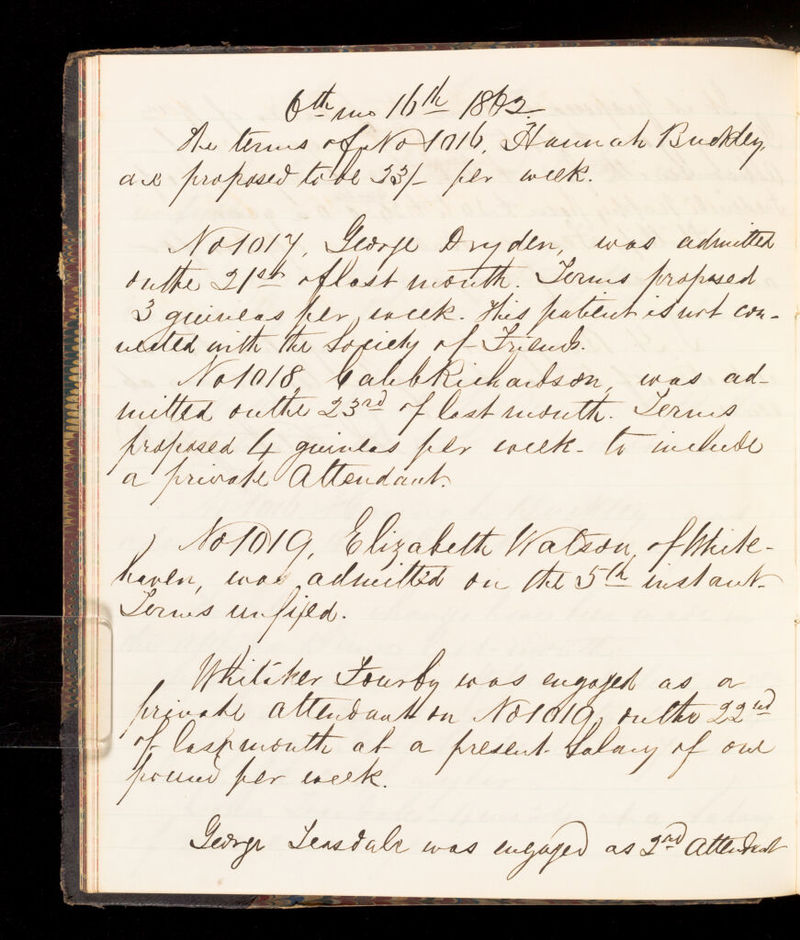 6th mo 16th 1862.
The terms of No 1016, Hannah Buckley,
are proposed to be 23/- per week.
No 1017, George Dryden, was admitted
on the 21st of last month. Terms proposed
3 guineas per week. This patient is not con-
nected with the Society of Friends.
No 1018, Caleb Richardson, was ad-
mitted on the 23rd of last month. Terms
proposed 4 guineas per week - to include
a private Attendant.
No 1019, Elizabeth Watson, of White-
haven, was admitted on the 5th instant.
Terms unfixed.
Whitaker was engaged as a
private attendant on No 1019, on the 22nd
of last month at a present Salary of one
pound per week.
George Teasdale was engaged as 2nd Attendant